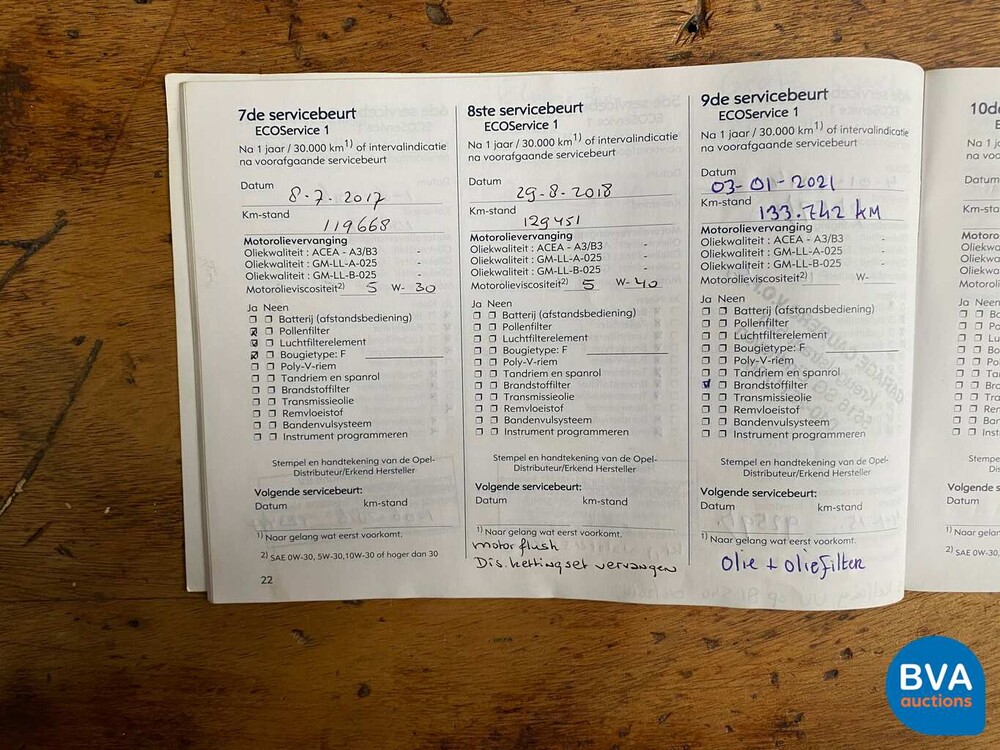 7de servicebeurt
ECOService 1
Na 1 jaar / 30.000 km1) of intervalindicatie
na voorafgaande servicebeurt
Datum
8-7-2017
Km-stand
119668
Motorolievervanging
Oliekwaliteit : ACEA - A3/B3 -
Oliekwaliteit : GM-LL-A-025 -
Oliekwaliteit : GM-LL-B-025 -
Motorolieviscositeit2) 5 W- 30
Ja Neen
Batterij (afstandsbediening)
Pollenfilter
Luchtfilterelement
Bougietype: F
Poly-V-riem
Tandriem en spanrol
Brandstoffilter
Transmissieolie
Remvloeistof
Bandenvulsysteem
Instrument programmeren
Stempel en handtekening van de Opel-
Distributeur/Erkend Hersteller
Volgende servicebeurt:
Datum km-stand
1) Naar gelang wat eerst voorkomt.
2) SAE 0W-30, 5W-30,10W-30 of hoger dan 30
22
8ste servicebeurt
ECOService 1
Na 1 jaar / 30.000 km1) of intervalindicatie
na voorafgaande servicebeurt
Datum
29-8-2018
Km-stand
129451
Motorolievervanging
Oliekwaliteit : ACEA - A3/B3 -
Oliekwaliteit : GM-LL-A-025 -
Oliekwaliteit : GM-LL-B-025 -
Motorolieviscositeit2) 5 W-40
Ja Neen
Batterij (afstandsbediening)
Pollenfilter
Luchtfilterelement
Bougietype: F
Poly-V-riem
Tandriem en spanrol
Brandstoffilter
Transmissieolie
Remvloeistof
Bandenvulsysteem
Instrument programmeren
Stempel en handtekening van de Opel-
Distributeur/Erkend Hersteller
Volgende servicebeurt:
Datum km-stand
1) Naar gelang wat eerst voorkomt.
motorflush
Dis.kettingset vervangen
9de servicebeurt
ECOService 1
Na 1 jaar / 30.000 km1) of intervalindicatie
na voorafgaande servicebeurt
Datum
03-01-2021
Km-stand
133.742 KM
Motorolievervanging
Oliekwaliteit : ACEA - A3/B3 -
Oliekwaliteit : GM-LL-A-025 -
Oliekwaliteit : GM-LL-B-025 -
Motorolieviscositeit2) W-
Ja Neen
Batterij (afstandsbediening)
Pollenfilter
Luchtfilterelement
Bougietype: F
Poly-V-riem
Tandriem en spanrol
Brandstoffilter
Transmissieolie
Remvloeistof
Bandenvulsysteem
Instrument programmeren
Stempel en handtekening van de Opel-
Distributeur/Erkend Hersteller
Volgende servicebeurt:
Datum km-stand
1) Naar gelang wat eerst voorkomt.
Olie + oliefilter
10d
Ja
1) Naar
2) SAE 0W-30
BVA
auctions